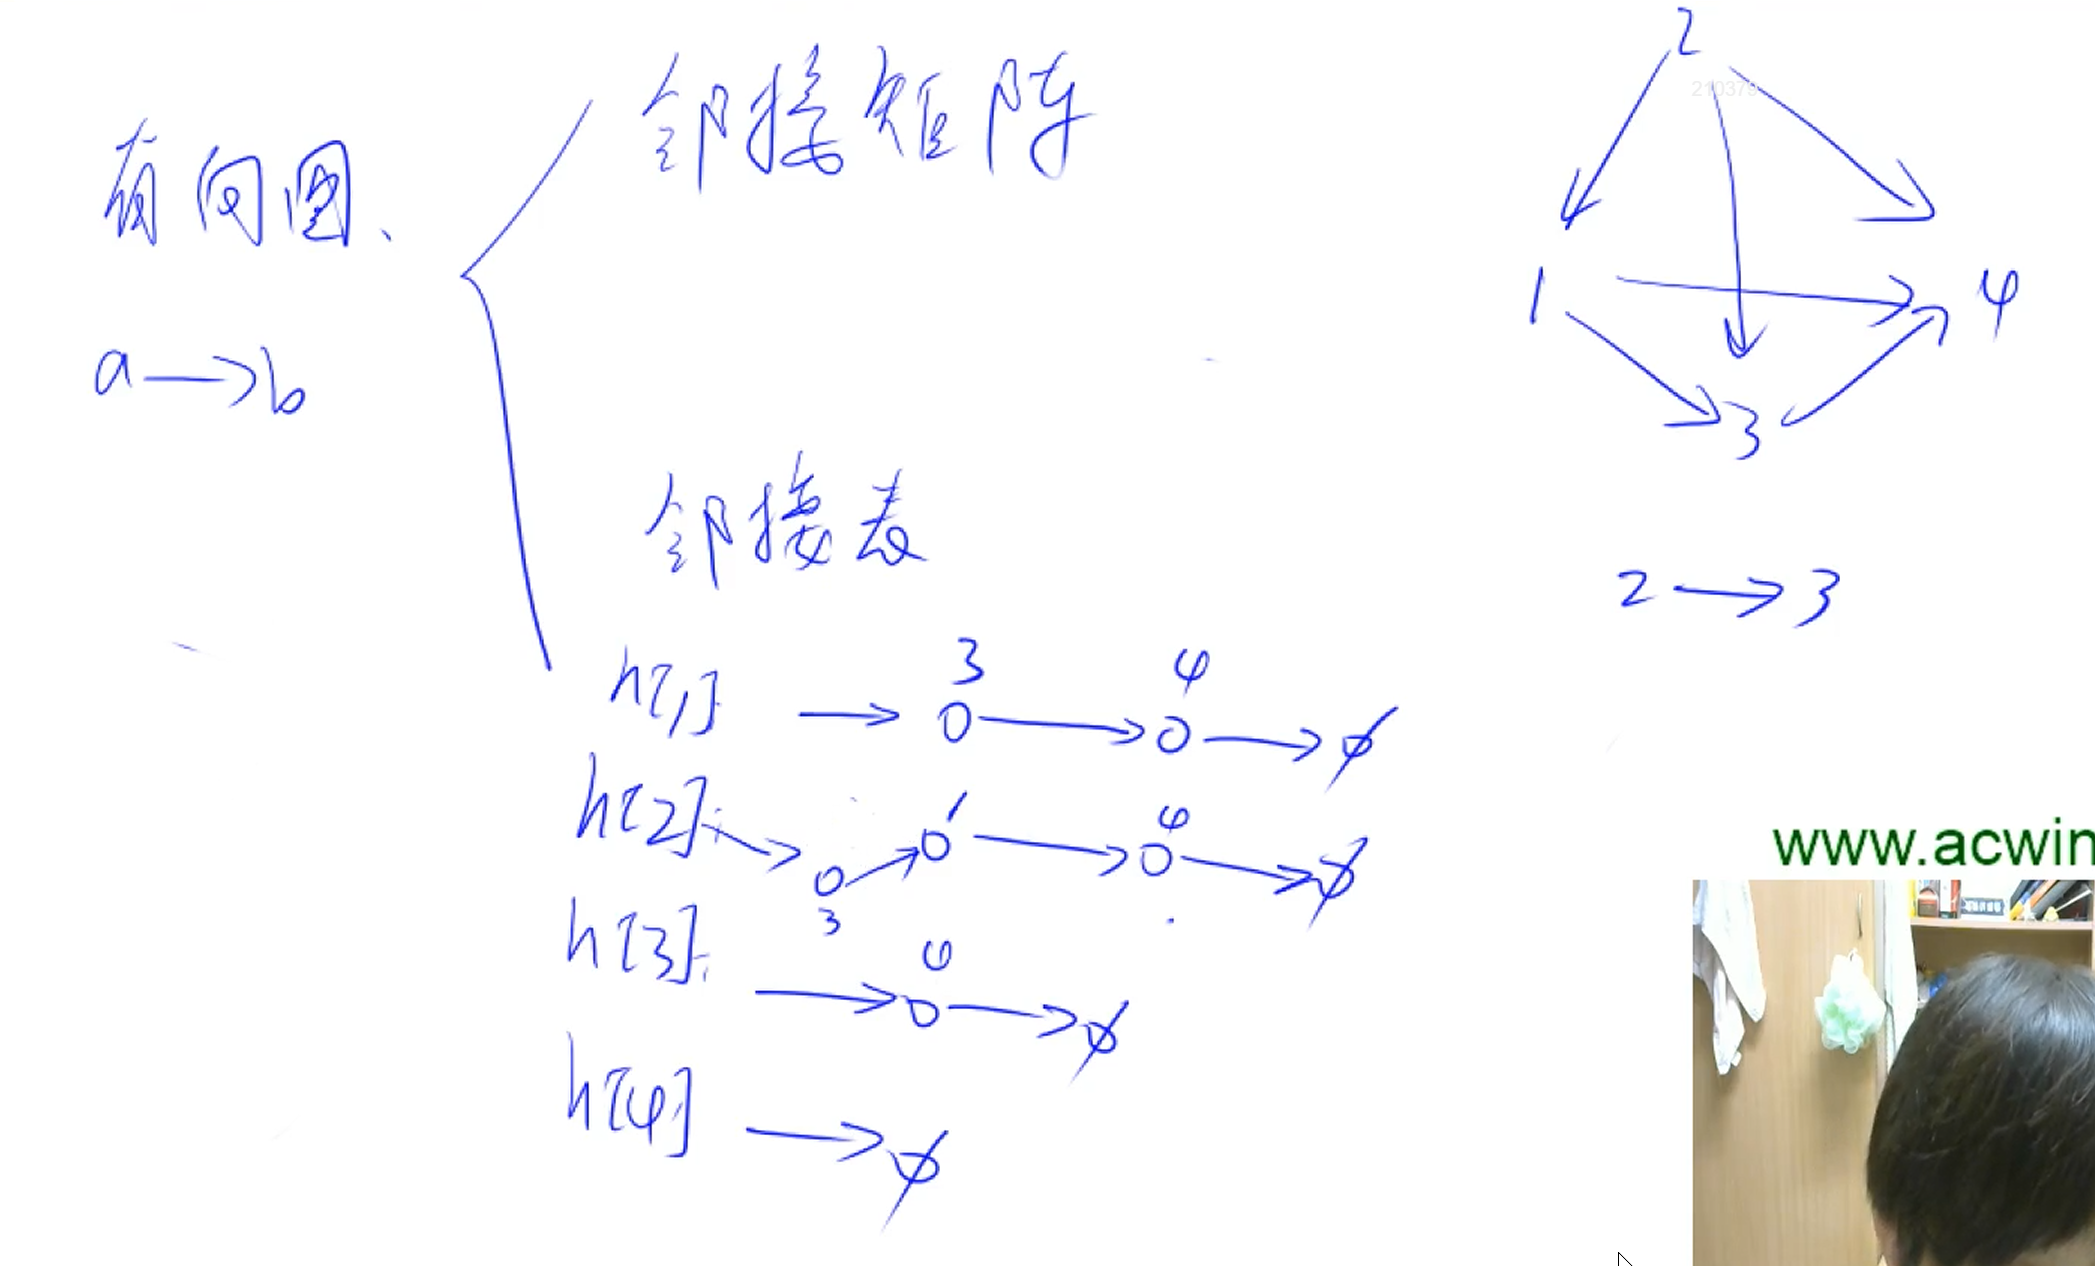 有向图、
a→b
邻接矩阵
邻接表
h[1] → 3 → 4 → ∅
h[2]: → 3 → 1 → 4 → ∅
h[3]: → 4 → ∅
h[4] → ∅
2
210379
1
4
3
2→3
www.acwin